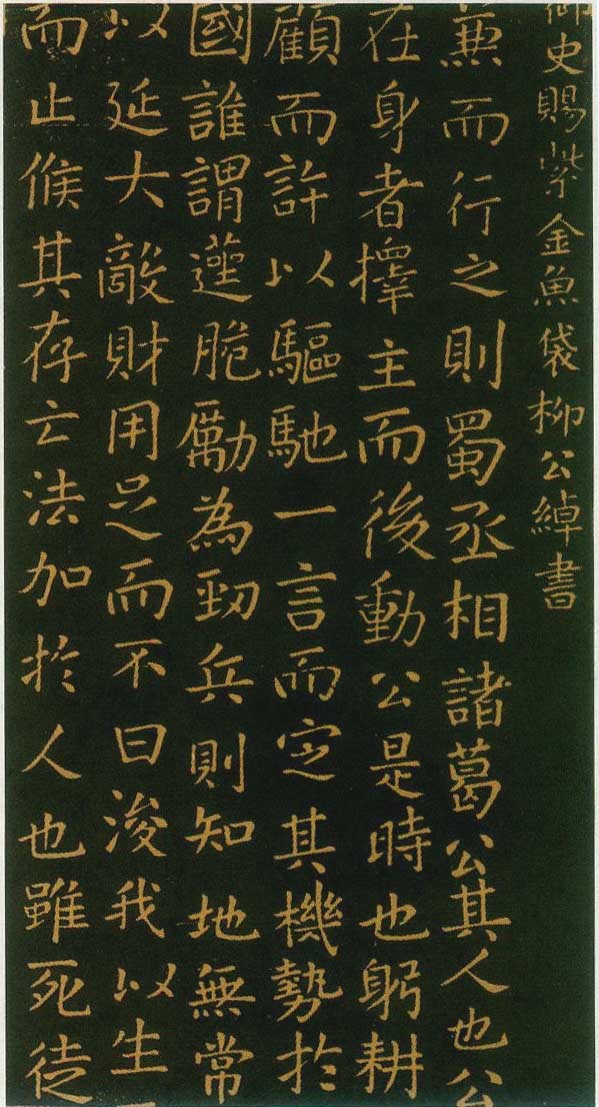 御史賜紫金魚袋柳公綽書
兼而行之則蜀丞相諸葛公其人也公
在身者擇主而後動公是時也躬耕
顧而許以驅馳一言而定其機勢扵
國誰謂遳脆勵為勁兵則知地無常
以延大敵財用足而不曰浚我以生
而止候其存亡法加扵人也雖死徒